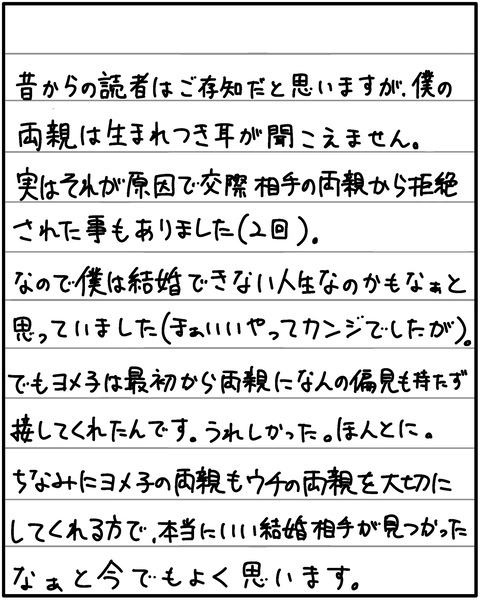 昔からの読者はご存知だと思いますが、僕の
両親は生まれつき耳が聞こえません。
実はそれが原因で交際相手の両親から拒絶
された事もありました(2回)。
なので僕は結婚できない人生なのかもなぁと
思っていました(まぁいいやってカンジでしたが)。
でもヨメ子は最初から両親になんの偏見も持たず
接してくれたんです。うれしかった。ほんとに。
ちなみにヨメ子の両親もウチの両親を大切に
してくれる方で、本当にいい結婚相手が見つかった
なぁと今でもよく思います。